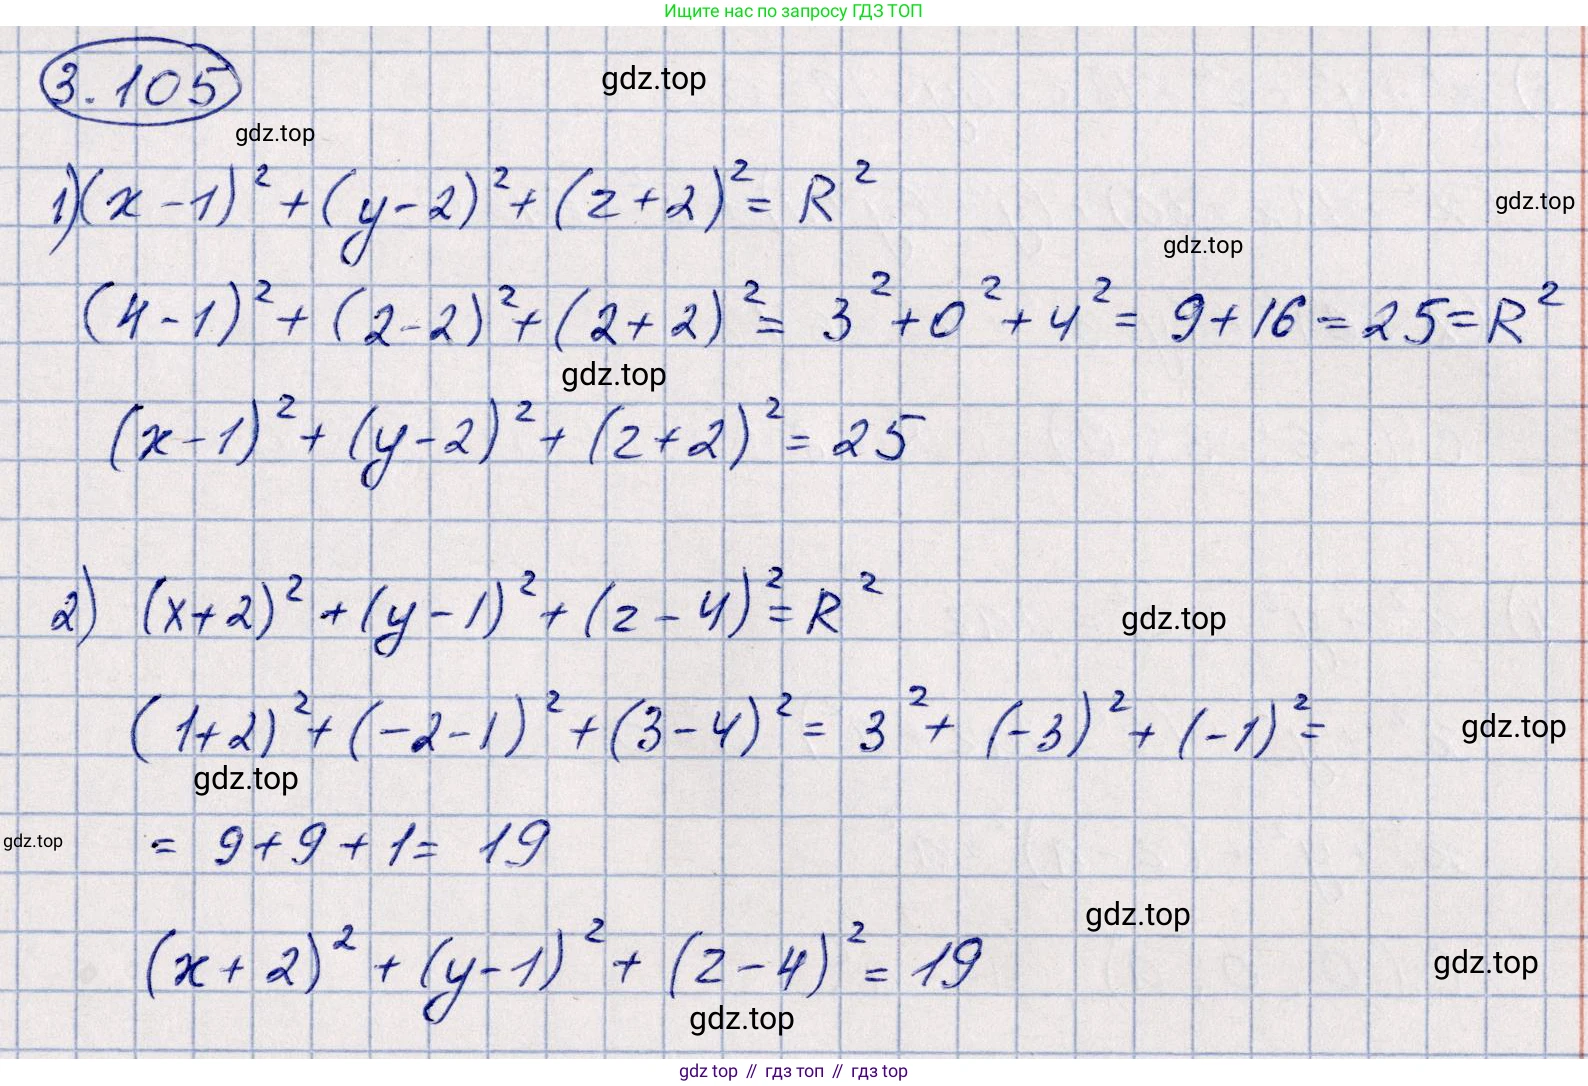 Ищите нас по запросу ГДЗ ТОП
3.105
gdz.top
gdz.top
1) (x-1)² + (y-2)² + (z+2)² = R²
gdz.top
gdz.top
(4-1)² + (2-2)² + (2+2)² = 3² + 0² + 4² = 9+16 = 25 = R²
gdz.top
(x-1)² + (y-2)² + (z+2)² = 25
2) (x+2)² + (y-1)² + (z-4)² = R²
gdz.top
(1+2)² + (-2-1)² + (3-4)² = 3² + (-3)² + (-1)² =
gdz.top
gdz.top
gdz.top
= 9+9+1 = 19
gdz.top
(x+2)² + (y-1)² + (z-4)² = 19
gdz.top
gdz.top
gdz top // гдз топ // гдз top